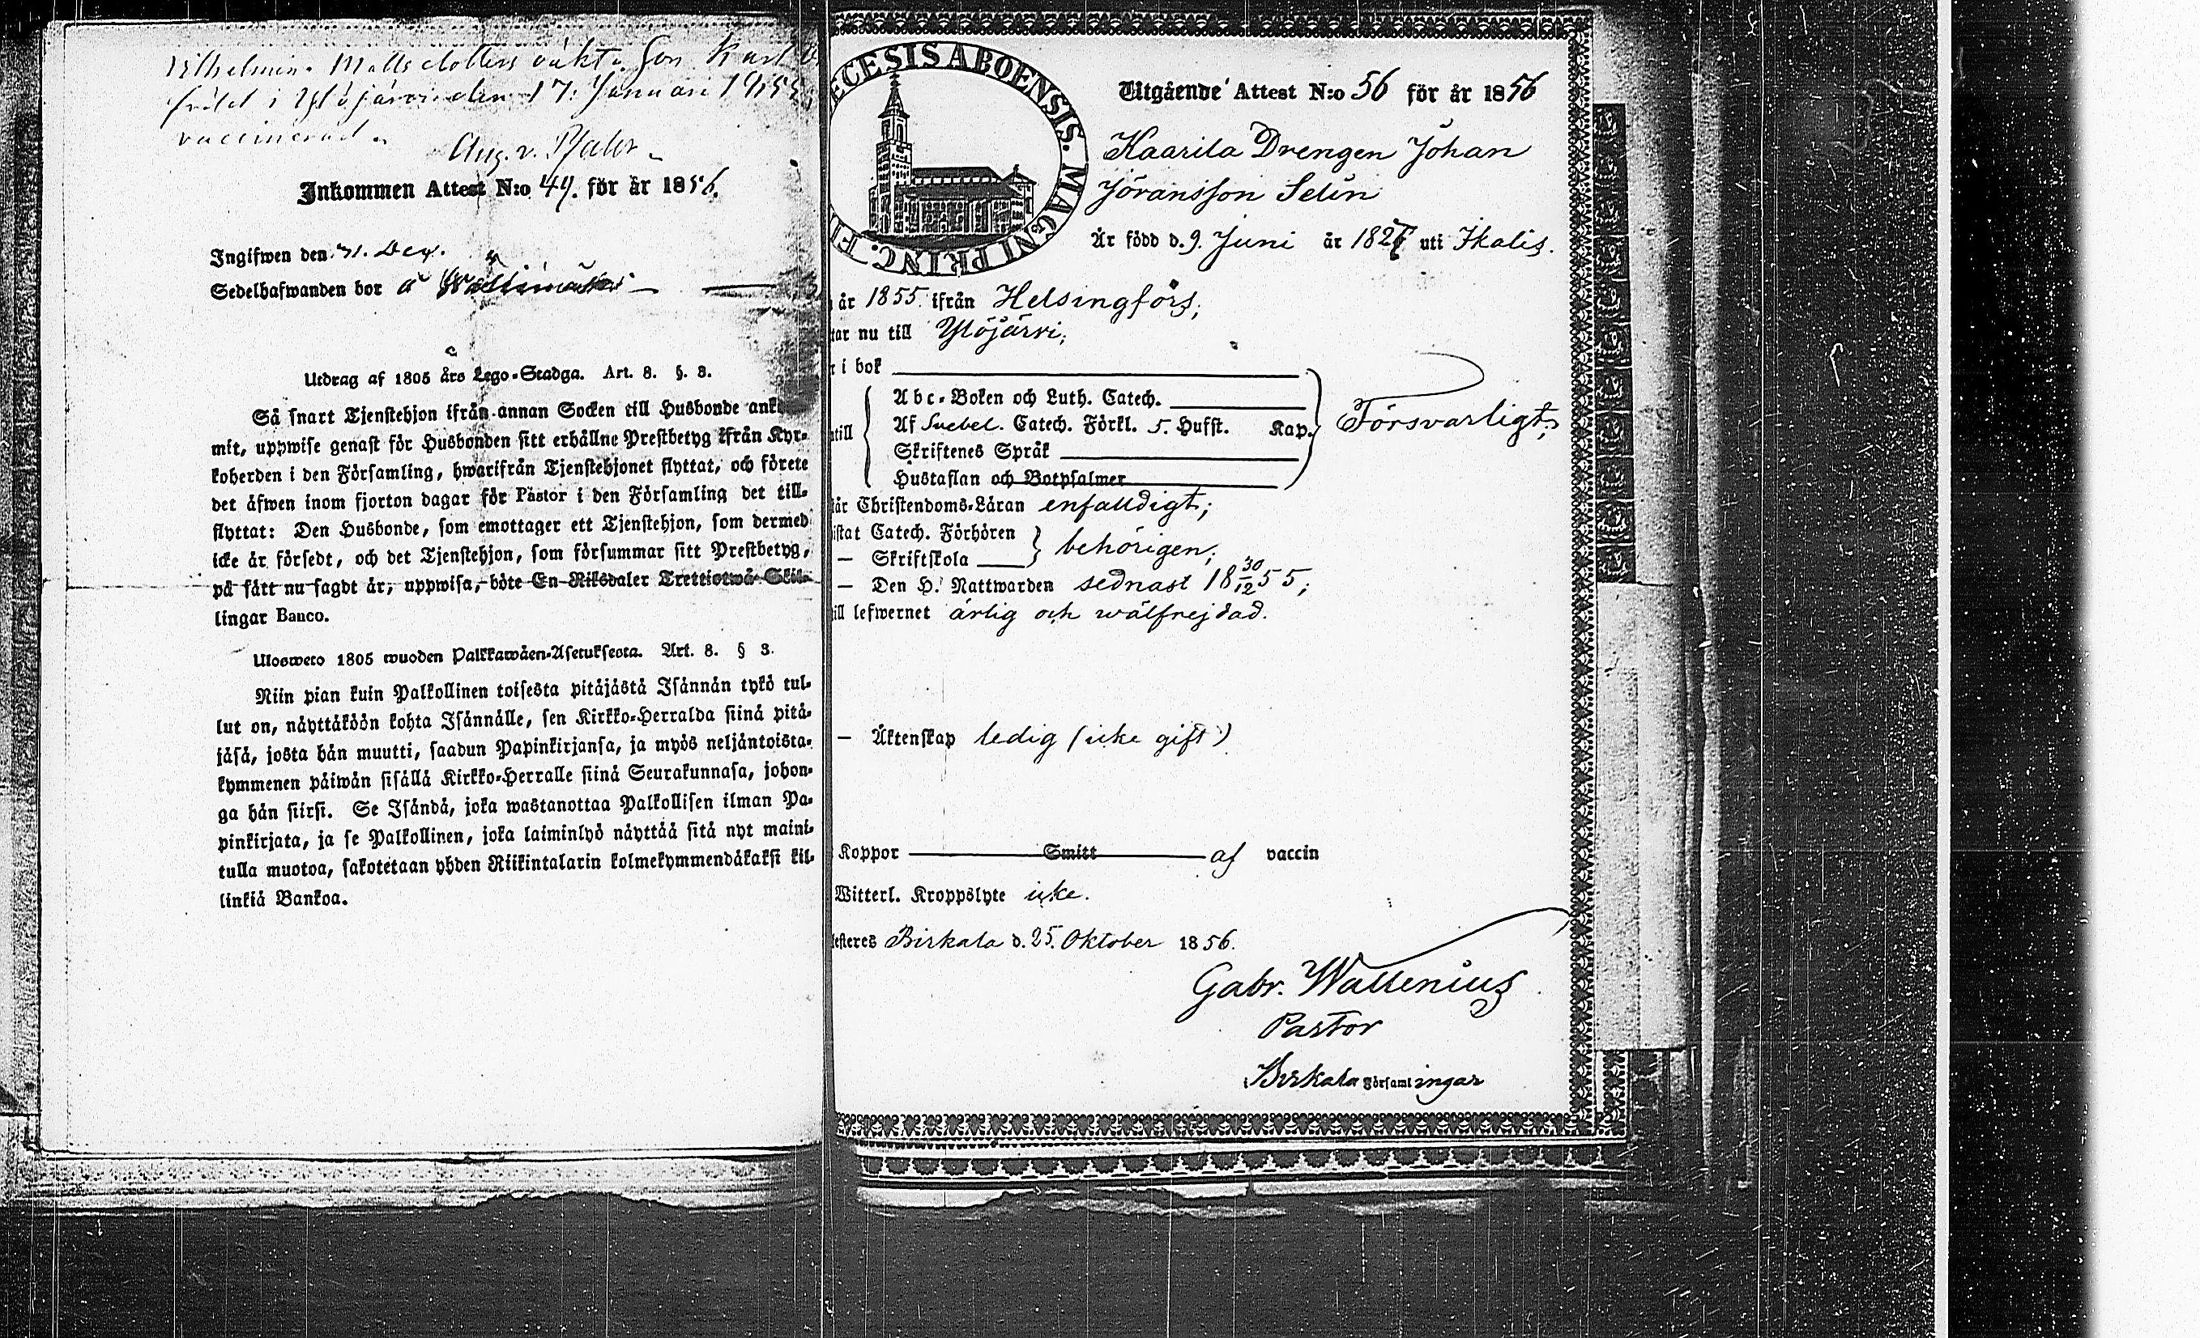 Wilhelmina Matts dotters oäkta son Karl
född i Ylöjärvi den 17. Januari 1855,
vaccinerad.
Aug. v. Pfaler
Inkommen Attest N:o 44. för år 1856.
Ingifwen den 31. Dec.
Sedelhafwanden bor å
Utdrag af 1805 års Lego-Stadga. Art. 8. §. 3.
Så snart Tjenstehjon ifrån annan Socken till Husbonde
mit, uppwise genast för Husbonden sitt erhållne Prestbetyg ifrån Kyr-
koherden i den Församling, hwarifrån Tjenstehjonet flyttat, och förete
det äfwen inom fjorton dagar för Pastor i den Församling det till-
flyttat: Den Husbonde, som emottager ett Tjenstehjon, som dermed
icke är försedt, och det Tjenstehjon, som försummar sitt Prestbetyg,
på sätt nu sagdt är, uppwisa, böte En Riksdaler Trettiotwå Skil-
lingar Banco.
Ulosweto 1805 wuoden Palkkawäen-Asetuksesta. Art. 8. § 3.
Niin pian kuin Palkollinen toisesta pitäjästä Isännän tykö tul-
lut on, näyttäköön kohta Isännälle, sen Kirkko-Herralda siinä pitä-
jäsä, josta hän muutti, saadun Papinkirjansa, ja myös neljäntoista-
kymmenen päiwän sisällä Kirkko-Herralle siinä Seurakunnasa, johon-
ga hän siirsi. Se Isändä, joka wastanottaa Palkollisen ilman Pa-
pinkirjata, ja se Palkollinen, joka laiminlyö näyttää sitä nyt maini-
tulla muotoa, sakotetaan yhden Riikintalarin kolmekymmendäkaksi kil-
linkiä Bankoa.
ECESIS ABOENSIS. MAGNI PRINC. FI
Utgående Attest N:o 56 för år 1856
Kaarila Drengen Johan
Jöransson Selin
Är född d. 9. Juni år 1827 uti Ikalis.
år 1855 ifrån Helsingfors;
tar nu till Ylöjärvi;
r i bok
Abc-Boken och Luth. Catech.
ntill Af Svebel. Catech. Förkl. 5. Hufst. Kap. Försvarligt;
Skriftenes Språk
Hustaflan och Botpsalmer
är Christendoms-Läran enfalldigt;
istat Catech. Förhören
— Skriftskola behörigen;
— Den H. Nattwarden sednast 18 30/12 55;
ill lefwernet ärlig och wälfrejdad.
— Äktenskap ledig (icke gift)
Koppor Smitt af vaccin
Witterl. Kroppslyte icke.
esteres Birkala d. 25. Oktober 1856.
Gabr. Wallenius
Pastor
i Birkala Församlingar